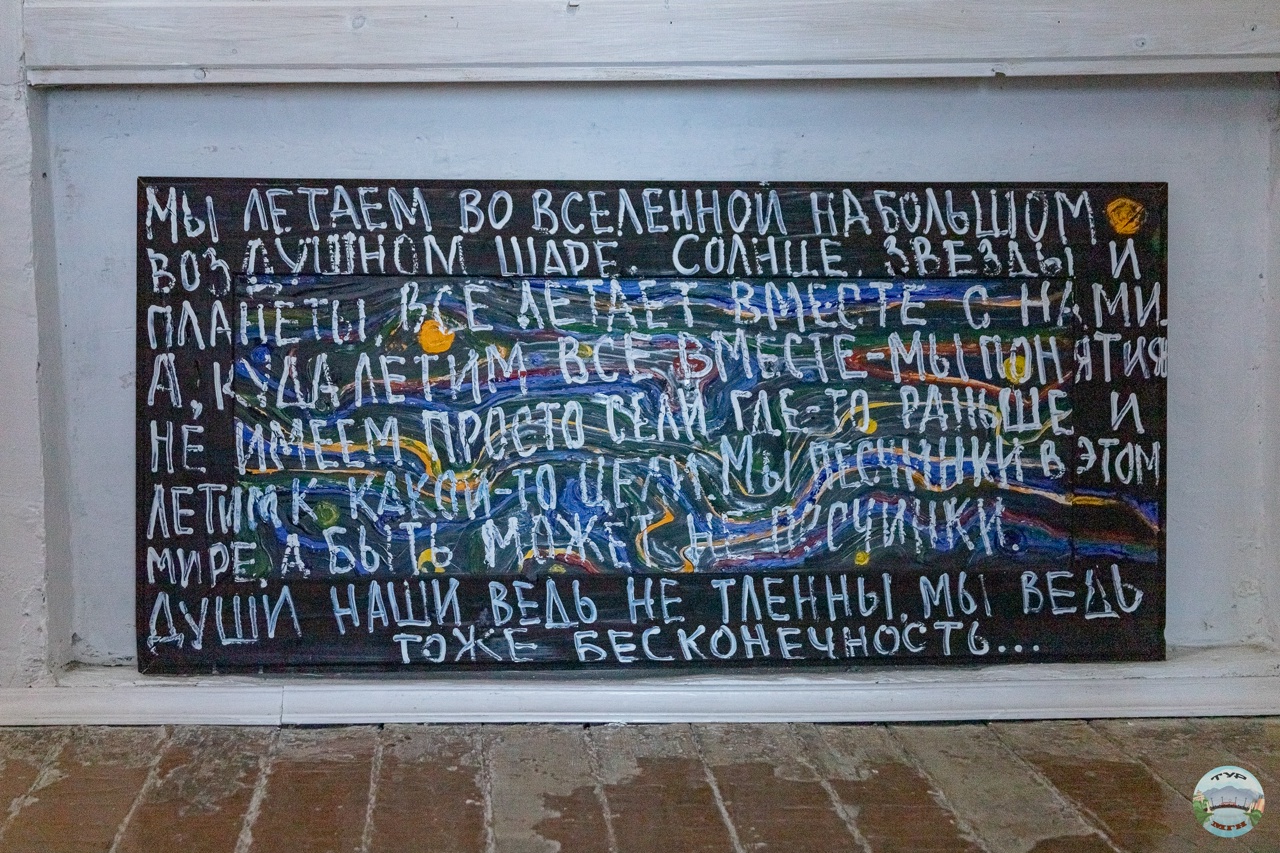 МЫ ЛЕТАЕМ ВО ВСЕЛЕННОЙ НА БОЛЬШОМ
ВОЗДУШНОМ ШАРЕ. СОЛНЦЕ. ЗВЕЗДЫ И
ПЛАНЕТЫ, ВСЕ ЛЕТАЕТ ВМЕСТЕ С НАМИ.
А, КУДА ЛЕТИМ ВСЕ ВМЕСТЕ-МЫ ПОНЯТИЯ
НЕ ИМЕЕМ ПРОСТО СЕЛИ ГДЕ-ТО РАНЬШЕ И
ЛЕТИМ К КАКОЙ-ТО ЦЕЛИ. МЫ ПЕСЧИНКИ В ЭТОМ
МИРЕ, А БЫТЬ МОЖЕТ НЕ ПЕСЧИНКИ.
ДУШИ НАШИ ВЕДЬ НЕ ТЛЕННЫ, МЫ ВЕДЬ
ТОЖЕ БЕСКОНЕЧНОСТЬ...
ТУР
МГН